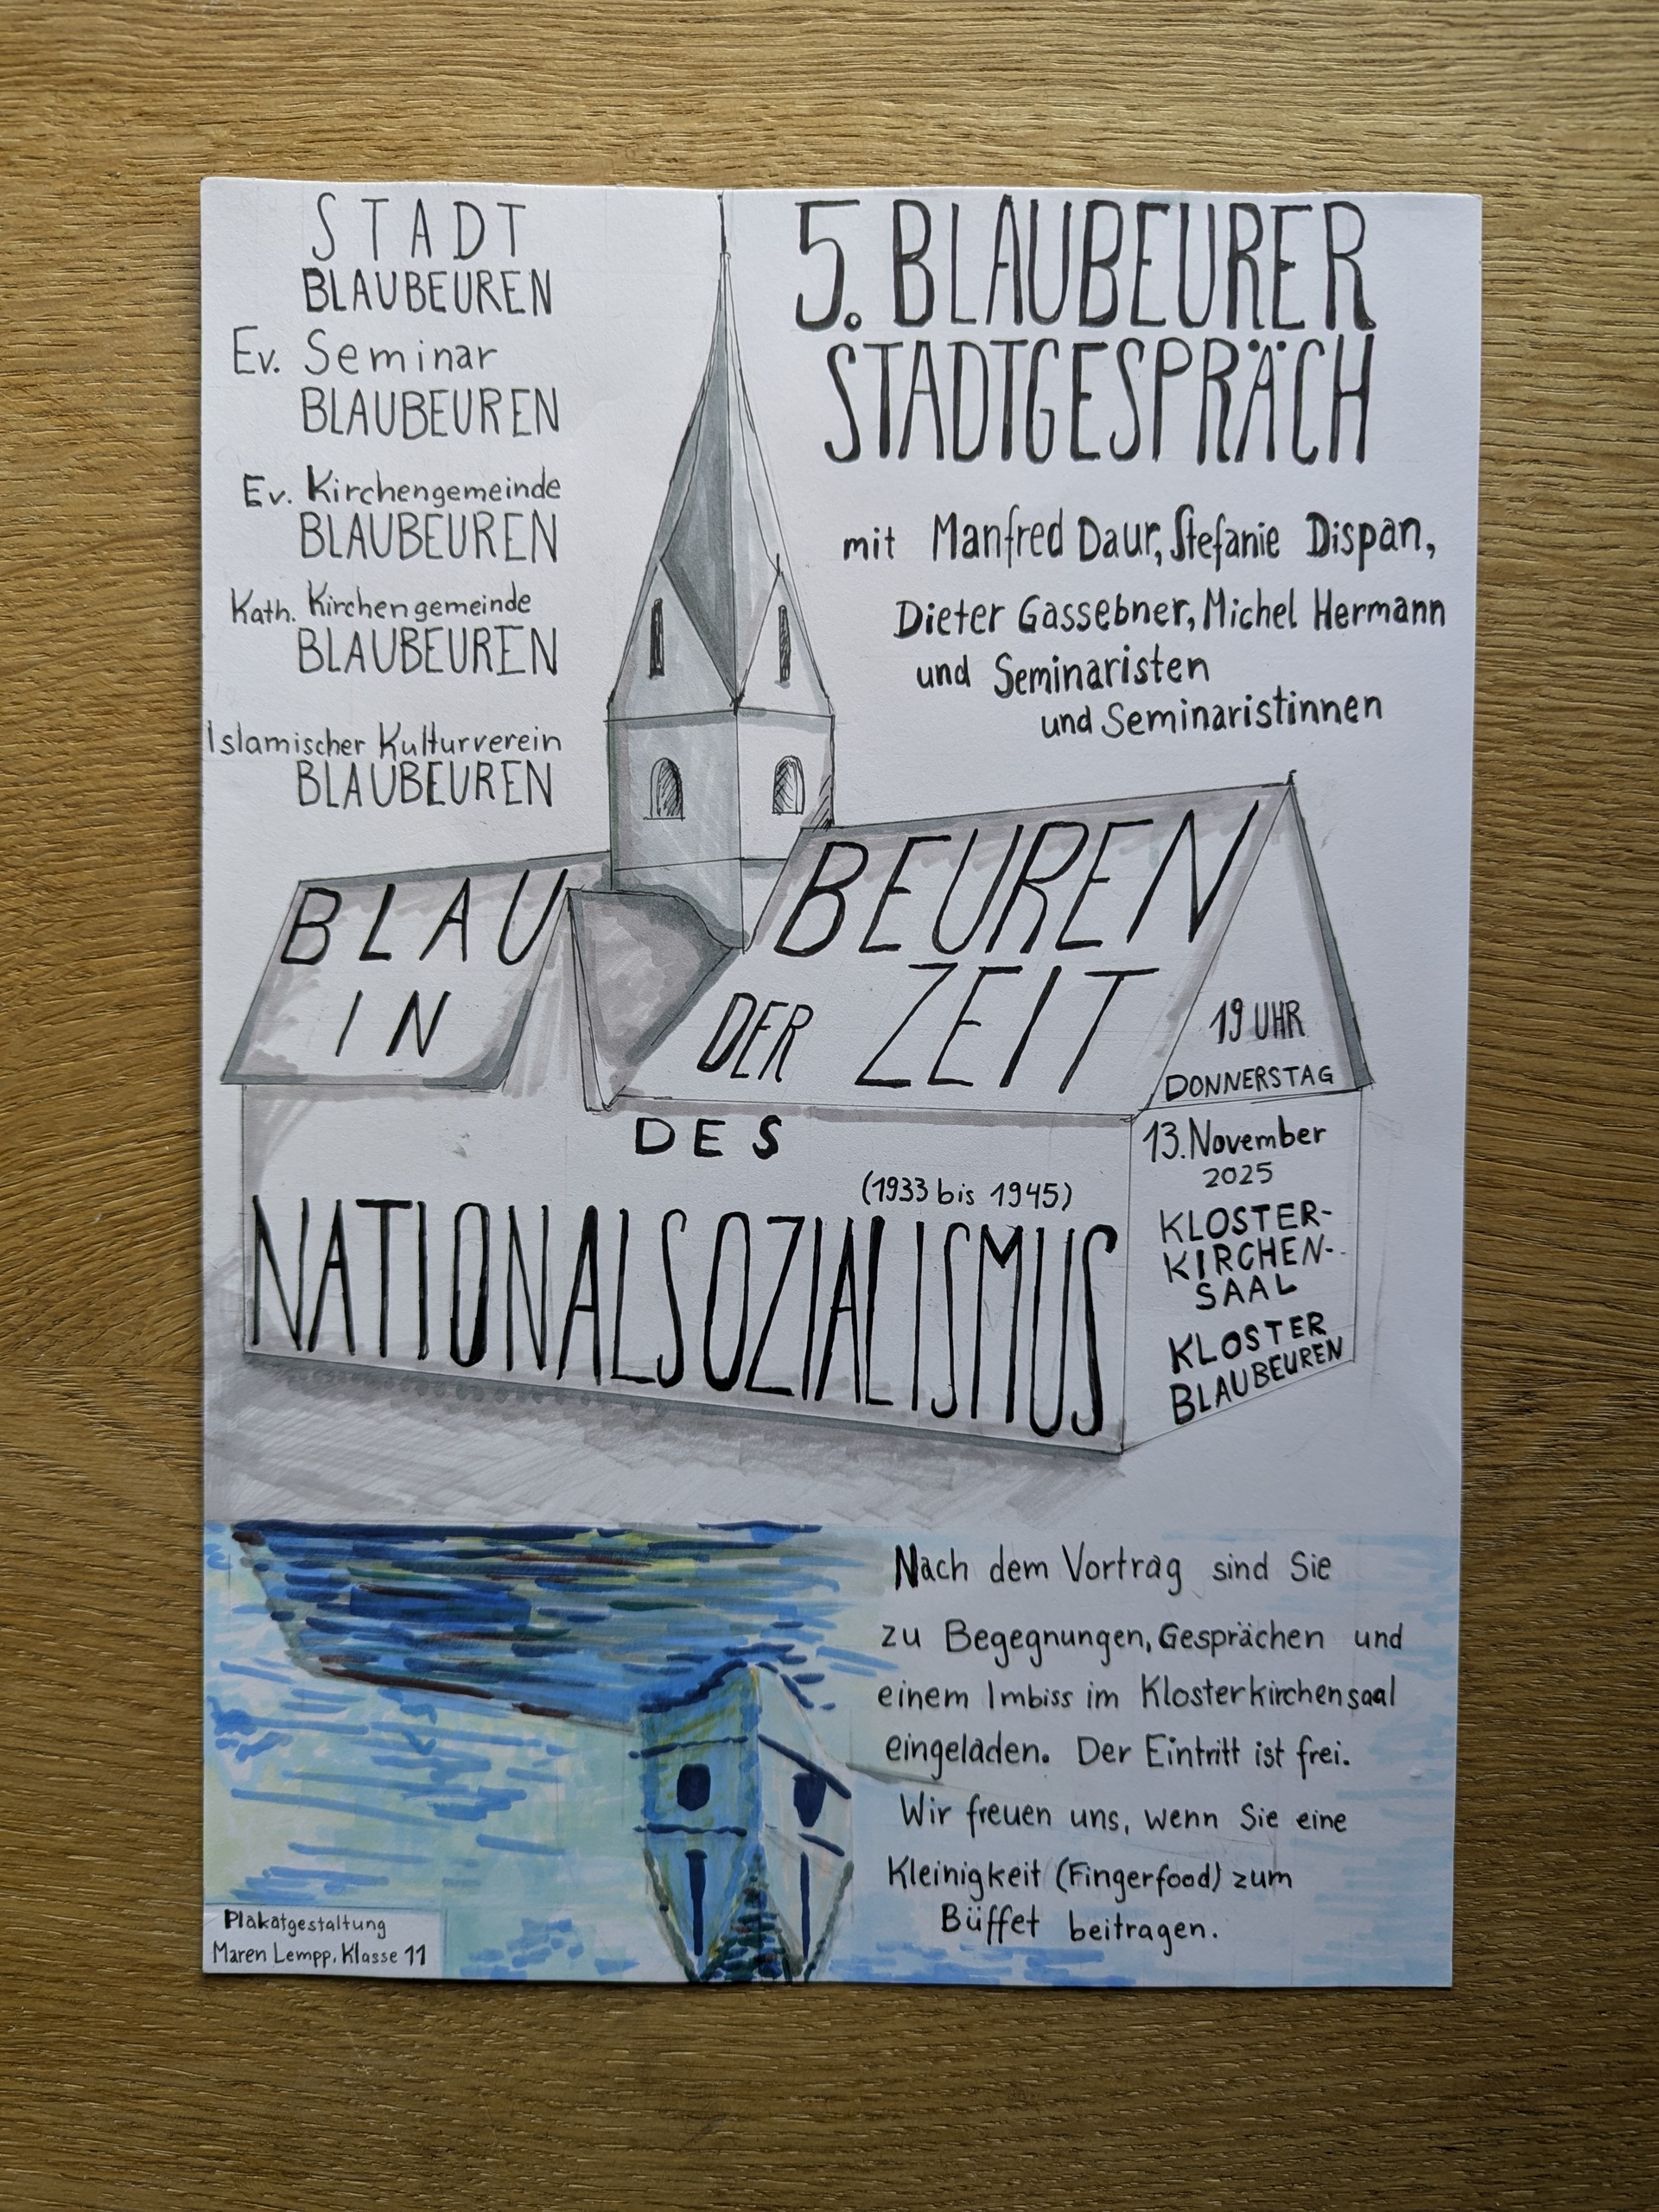 STADT
BLAUBEUREN
Ev. Seminar
BLAUBEUREN
Ev. Kirchengemeinde
BLAUBEUREN
Kath. Kirchengemeinde
BLAUBEUREN
Islamischer Kulturverein
BLAUBEUREN
5. BLAUBEURER
STADTGESPRÄCH
mit Manfred Daur, Stefanie Dispan,
Dieter Gassebner, Michel Hermann
und Seminaristen
und Seminaristinnen
BLAU BEUREN
IN DER ZEIT
DES
(1933 bis 1945)
NATIONALSOZIALISMUS
19 UHR
DONNERSTAG
13. November
2025
KLOSTER-
KIRCHEN-
SAAL
KLOSTER
BLAUBEUREN
Nach dem Vortrag sind Sie
zu Begegnungen, Gesprächen und
einem Imbiss im Klosterkirchensaal
eingeladen. Der Eintritt ist frei.
Wir freuen uns, wenn Sie eine
Kleinigkeit (Fingerfood) zum
Büffet beitragen.
Plakatgestaltung
Maren Lempp, Klasse 11